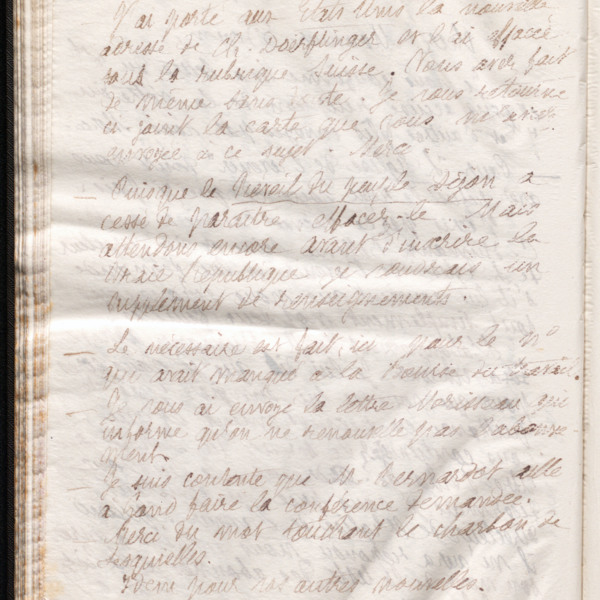 J'ai porté aux Etats Unis la nouvelle
adresse de Ch. Doerflinger et l'ai effacée
sous la rubrique Suisse. Vous avez fait
de même sans doute. Je vous retourne
ci-joint la carte que vous m'avez
envoyée à ce sujet. Merci.
— Puisque le Travail du peuple Dijon a
cessé de paraître effacez-le. Mais
attendons encore avant d'inscrire la
vraie République je voudrais un
supplément de renseignements.
— Le nécessaire est fait ici pour le n°
qui avait manqué à la Bourse du Travail.
— Je vous ai envoyé la lettre qui
informe qu'on ne renouvelle pas l'abonne-
ment.
— Je suis contente que M. Bernardot aille
à Gand faire la conférence demandée.
Merci du mot touchant le charbon de
Idem pour vos autres nouvelles.